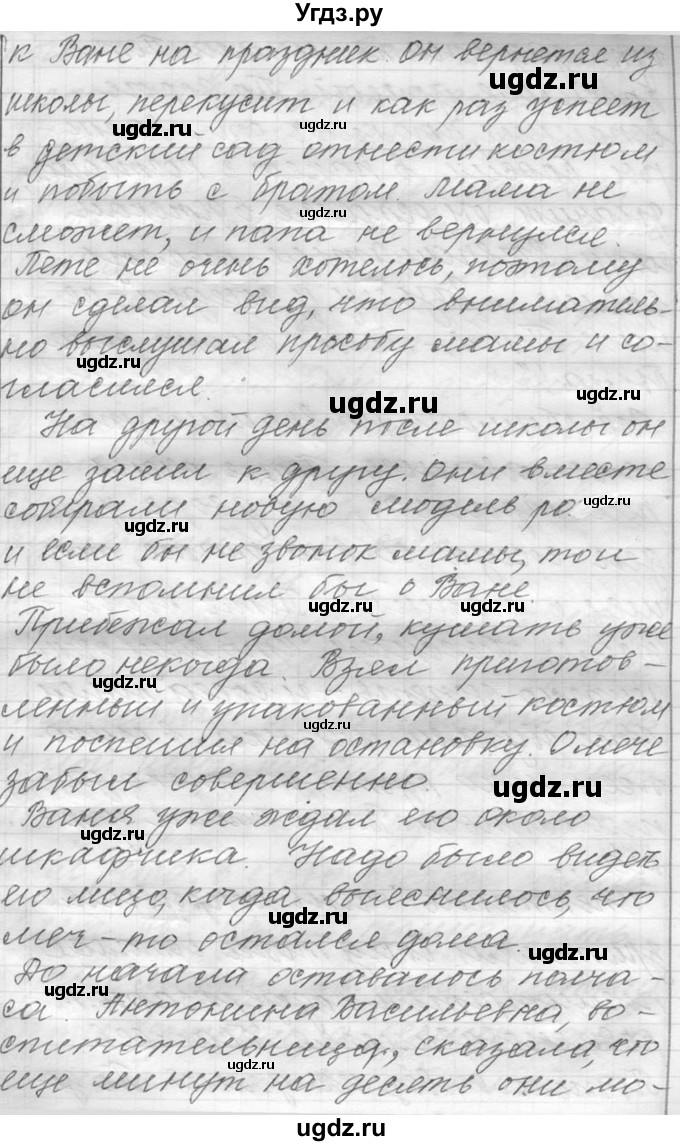 Угдз.ру
к Ване на праздник. Он вернется из
ugdz.ru
школы, перекусит и как раз успеет
ugdz.ru
ugdz.ru
в детский сад отнести костюм
ugdz.ru
и побыть с братом. Мама не
ugdz.ru
сможет, и папа не вернулся.
Пете не очень хотелось, поэтому
ugdz.ru
он сделал вид, что вниматель-
но выслушал просьбу мамы и со-
ugdz.ru
гласился.
ugdz.ru
На другой день после школы он
еще зашел к другу. Они вместе
собирали новую модель ро
ugdz.ru
ugdz.ru
и если бы не звонок мамы, то и
не вспомнил бы о Ване.
ugdz.ru
ugdz.ru
Прибежал домой, кушать уже
было некогда. Взял приготов-
ugdz.ru
ленный и упакованный костюм
ugdz.ru
и поспешил на остановку. О мече
забыл совершенно.
ugdz.ru
Ваня уже ждал его около
ugdz.ru
шкафчика. Надо было видеть
его лицо, когда выяснилось, что
ugdz.ru
меч-то остался дома.
ugdz.ru
До начала оставалось полча-
ugdz.ru
са. Антонина Васильевна, во-
спитательница, сказала, что
ugdz.ru
еще минут на десять они мо-
ugdz.ru